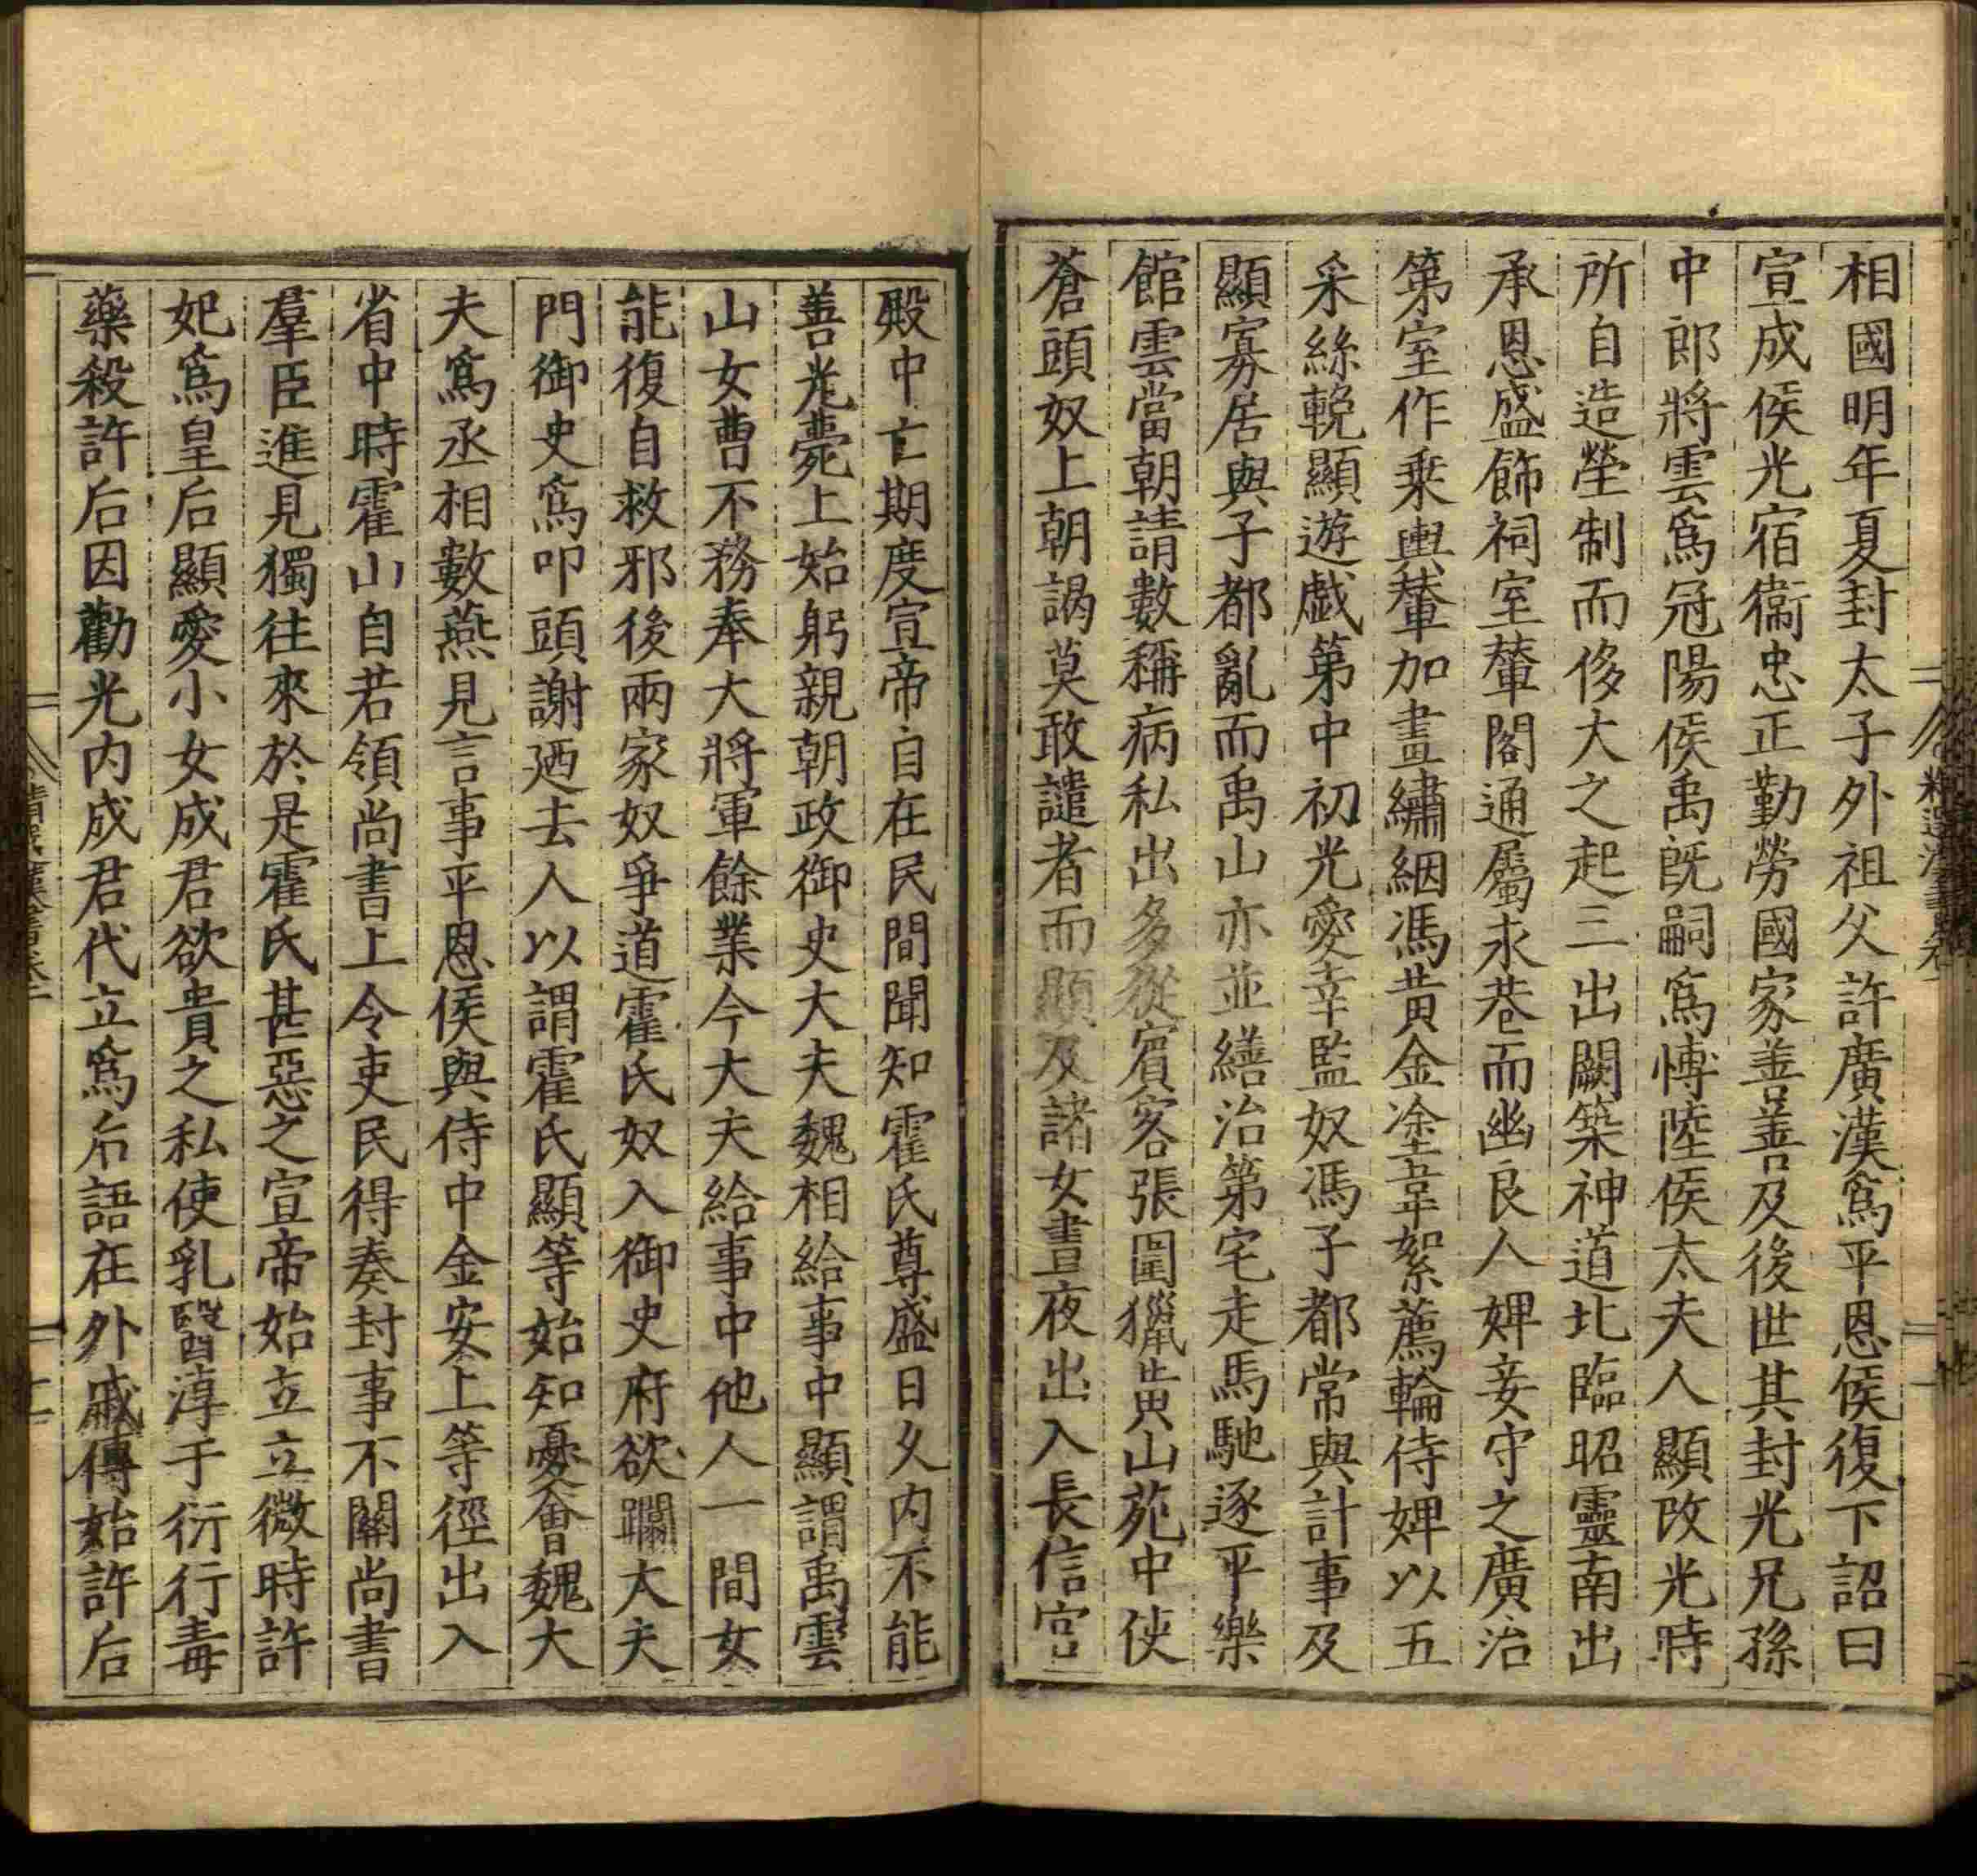 相國明年夏封太子外祖父許廣漢爲平恩侯復下詔曰
宣成侯光宿衞忠正勤勞國家善善及後世其封光兄孫
中郎將雲爲冠陽侯禹旣嗣爲博陸侯太夫人顯改光時
所自造塋制而侈大之起三出闕築神道北臨昭靈南出
承恩盛飾祠室輦閣通屬永巷而幽良人婢妾守之廣治
第室作乗輿輦加畫繡絪馮黃金塗韋絮薦輪侍婢以五
采絲輓顯遊戲第中初光愛幸監奴馮子都常與計事及
顯寡居與子都亂而禹山亦並繕治第宅走馬馳逐平樂
館雲當朝請數稱病私出多從賓客張圍獵黃山苑中使
蒼頭奴上朝謁莫敢譴者而顯及諸女晝夜出入長信宮
殿中亡期度宣帝自在民間聞知霍氏尊盛日久内不能
善光薨上始躬親朝政御史大夫魏相給事中顯謂禹雲
山女曹不務奉大將軍餘業今大夫給事中他人一間女
能復自救邪後兩家奴爭道霍氏奴入御史府欲躢大夫
門御史爲叩頭謝廼去人以謂霍氏顯等始知憂會魏大
夫爲丞相數燕見言事平恩侯與侍中金安上等徑出入
省中時霍山自若領尚書上令吏民得奏封事不關尚書
羣臣進見獨往來於是霍氏甚惡之宣帝始立立微時許
妃爲皇后顯愛小女成君欲貴之私使乳醫淳于衍行毒
藥殺許后因勸光内成君代立爲后語在外戚傳始許后